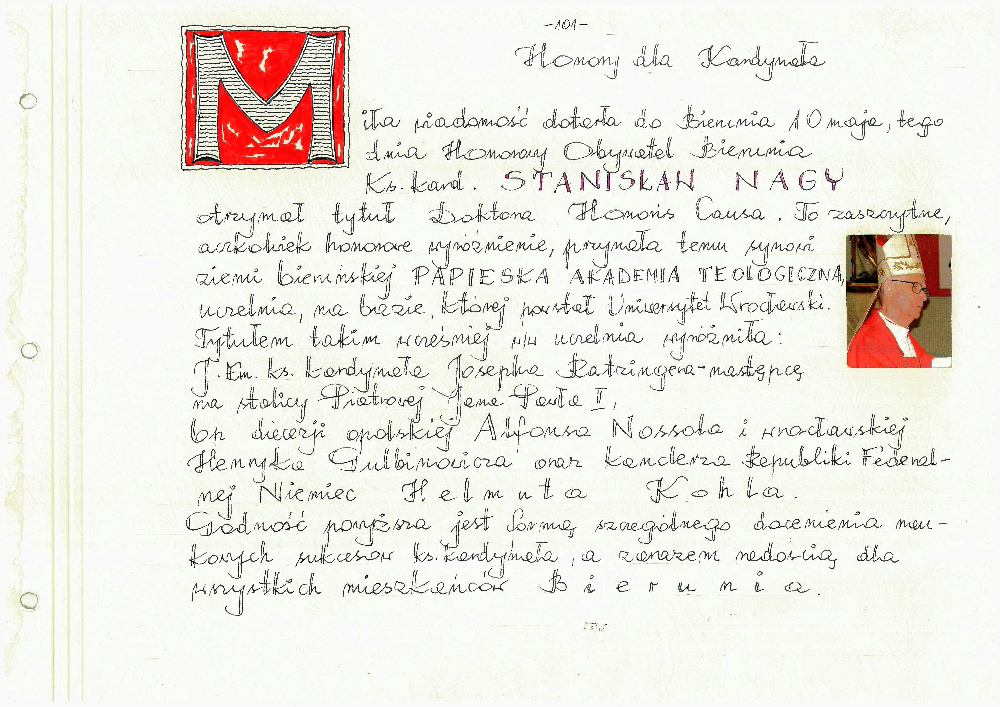 -101-
Honory dla Kardynała
Miła wiadomość dotarła do Bierunia 10 maja, tego
dnia Honorowy Obywatel Bierunia
Ks. kard. STANISŁAW NAGY
otrzymał tytuł Doktora Honoris Causa. To zaszczytne,
aczkolwiek honorowe wyróżnienie, przyznała temu synowi
ziemi bieruńskiej PAPIESKA AKADEMIA TEOLOGICZNA,
uczelnia, na bazie, której powstał Uniwersytet Wrocławski.
Tytułem takim wcześniej w/w uczelnia wyróżniła:
J. Em. ks. kardynała Josepha Ratzingera-następcę
na stolicy Piotrowej Jana Pawła II,
bp diecezji opolskiej Alfonsa Nossola i wrocławskiej
Henryka Gulbinowicza oraz kanclerza Republiki Federal-
nej Niemiec Helmuta Kohla.
Godność powyższa jest formą szczególnego docenienia nau-
kowych sukcesów ks. kardynała, a zarazem radością dla
wszystkich mieszkańców Bierunia.